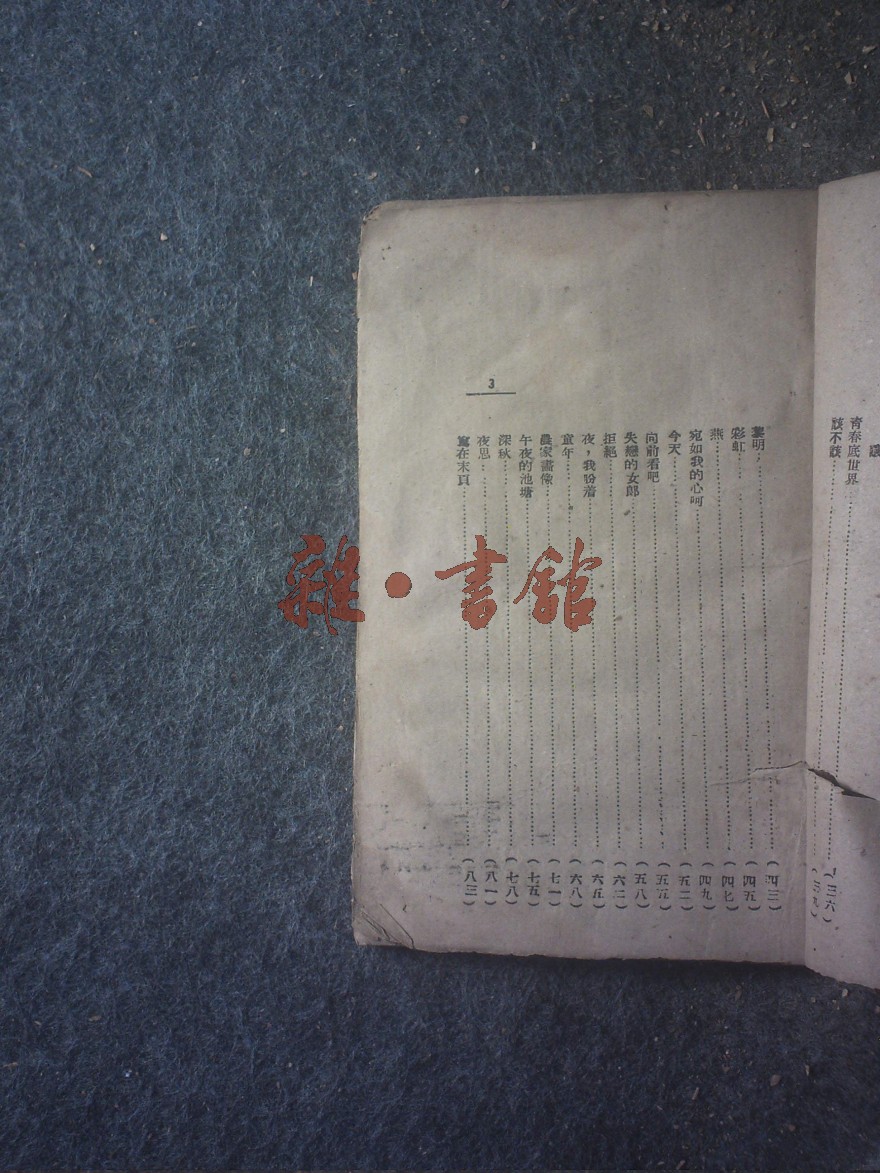 青春底世界……(三六)
該不該……(三九)
3
黎明……(四三)
彩虹……(四五)
燕……(四七)
宛如我的心呵……(四九)
今天……(五二)
向前看吧……(五五)
失戀的女郎……(五八)
拒絕……(六二)
夜，我盼着……(六五)
童年……(六八)
農家畫像……(七一)
午夜的池塘……(七五)
深秋……(七八)
夜思……(八一)
寫在末頁……(八三)
雜·書館